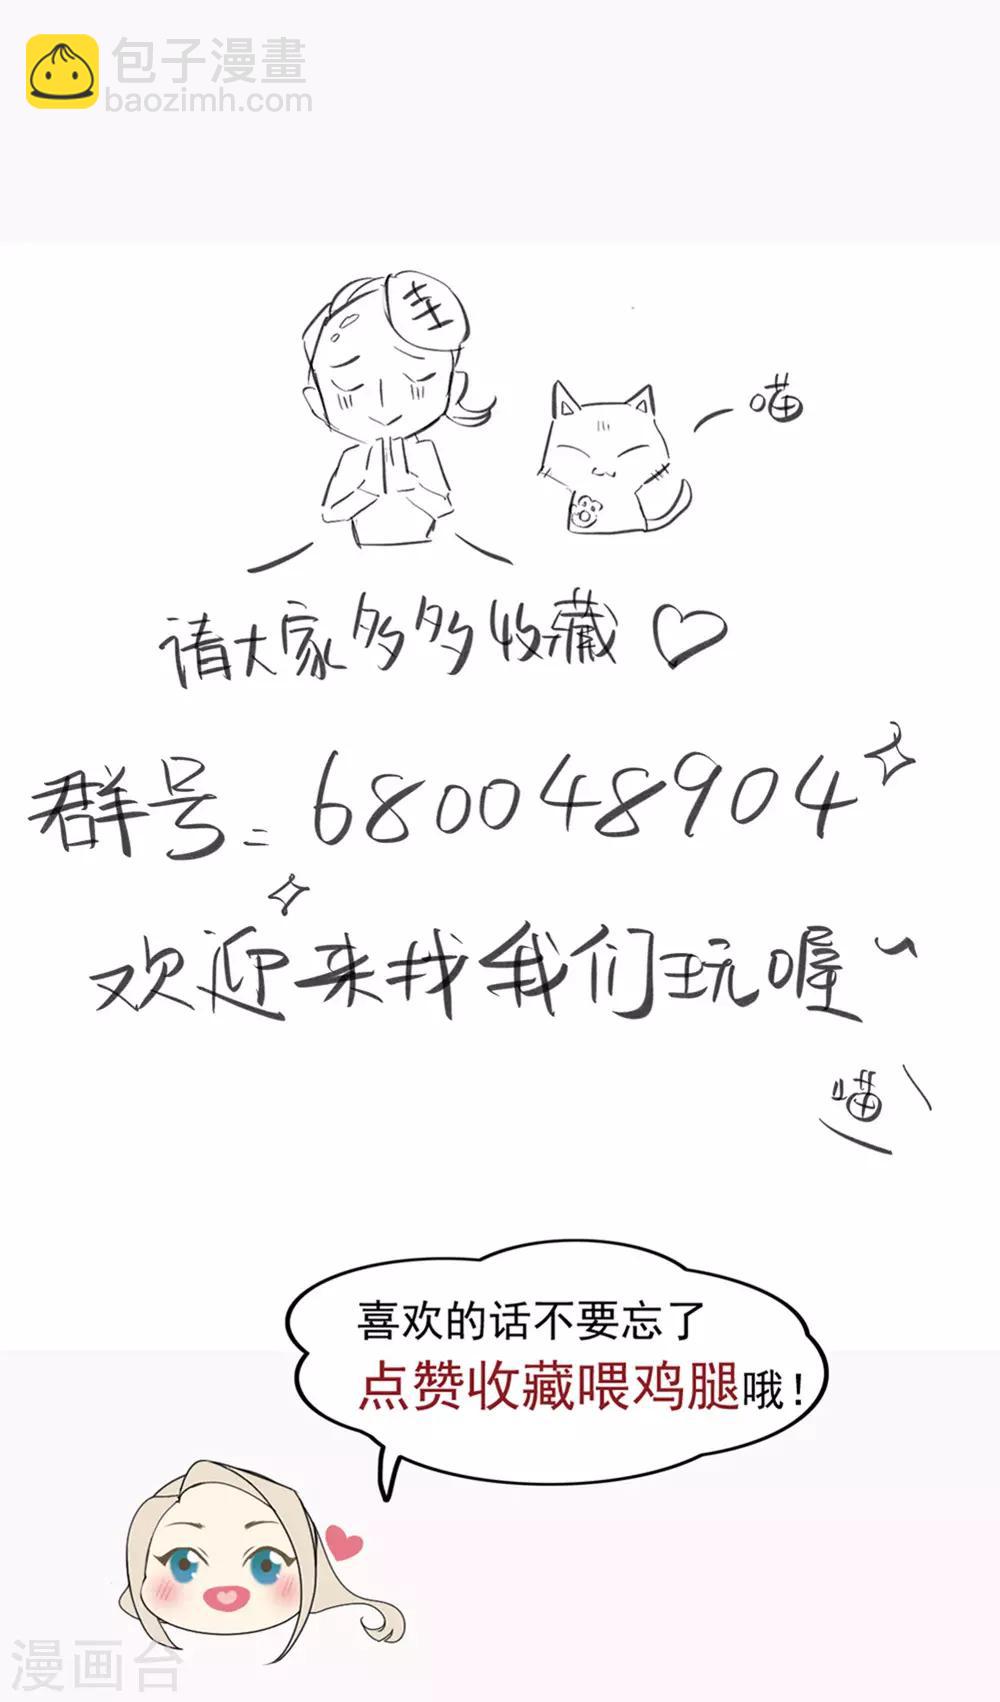 包子漫畫
baozimh.com
圭
喵
请大家多多收藏♡
群号=680048904
欢迎来找我们玩喔~
喵
喜欢的话不要忘了
点赞收藏喂鸡腿哦！
漫画台